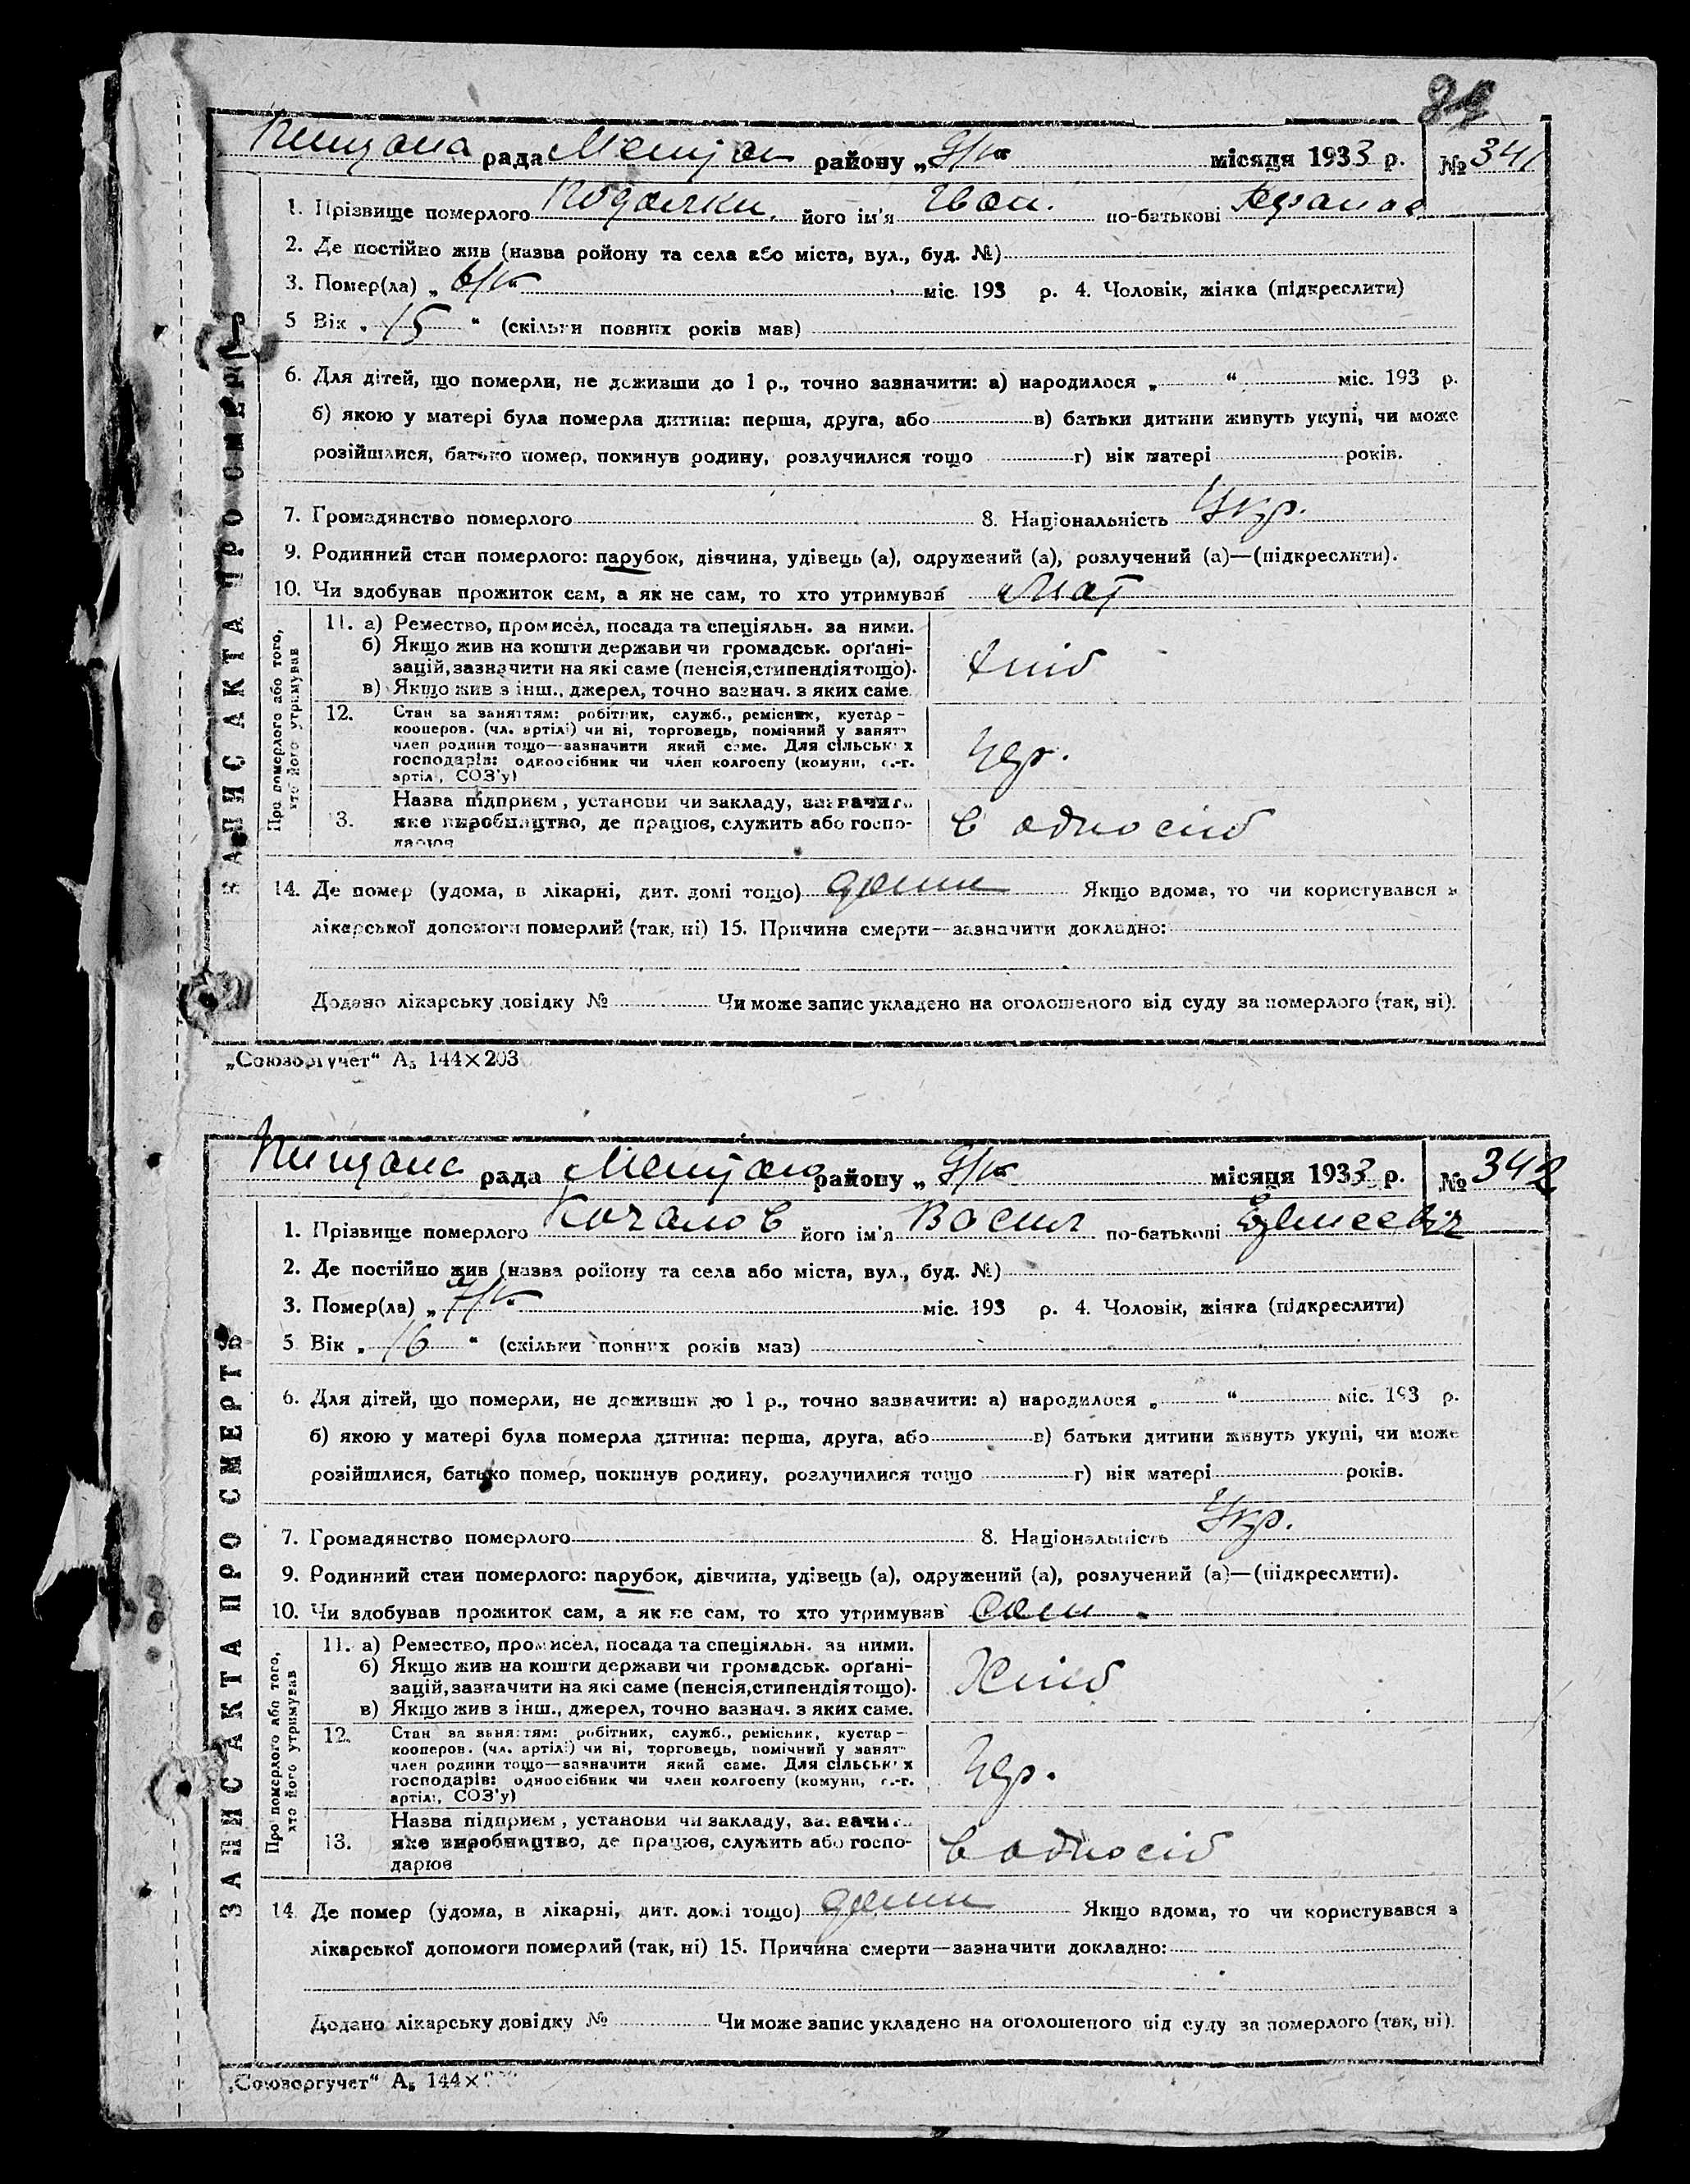 рада району „ місяця 1933 р. № 341
1. Прізвище померлого його ім'я Іван. по-батькові
2. Де постійно жив (назва ройону та села або міста, вул., буд. №)
3. Помер(ла) „ 6/V міс. 193 р. 4. Чоловік, жінка (підкреслити)
5 Вік „ 15 “ (скільки повних років мав)
6. Для дітей, що померли, не доживши до 1 р., точно зазначити: а) народилося „ “ міс. 193 р.
б) якою у матері була померла дитина: перша, друга, або в) батьки дитини живуть укупі, чи може
розійшлися, батько помер, покинув родину, розлучилися тощо г) вік матері років.
7. Громадянство померлого 8. Національність Укр.
9. Родинний стан померлого: парубок, дівчина, удівець (а), одружений (а), розлучений (а)—(підкреслити).
10. Чи здобував прожиток сам, а як не сам, то хто утримував Мат
ЗАПИС АКТА ПРО СМЕРТЬ
Про померлого або того, хто його утримував
11. а) Ремество, промисел, посада та спеціяльн. за ними.
б) Якщо жив на кошти держави чи громадськ. орґані-
зацій, зазначити на які саме (пенсія, стипендія тощо).
в) Якщо жив з інш., джерел, точно зазнач. з яких саме.
хліб
12. Стан за заняттям: робітник, служб., ремісник, кустар-
кооперов. (чл. артілі) чи ні, торговець, помічний у занят
член родини тощо—зазначити який саме. Для сільських
господарів: одноосібник чи член колгоспу (комуни, с.-г.
артілі, СОЗ'у)
13. Назва підприєм, установи чи закладу, зазначить
яке виробництво, де працює, служить або госпо-
дарює
в односіб
14. Де помер (удома, в лікарні, дит. домі тощо) дома Якщо вдома, то чи користувався з
лікарської допомоги померлий (так, ні) 15. Причина смерти—зазначити докладно:
Додано лікарську довідку № Чи може запис укладено на оголошеного від суду за померлого (так, ні).
„Союзоргучет“ А₅ 144×203
рада району „ місяця 1933 р. № 342
1. Прізвище померлого Качалов його ім'я Васил по-батькові
2. Де постійно жив (назва ройону та села або міста, вул., буд. №)
3. Помер(ла) „ 7/V міс. 193 р. 4. Чоловік, жінка (підкреслити)
5 Вік „ 16 “ (скільки повних років мав)
6. Для дітей, що померли, не доживши до 1 р., точно зазначити: а) народилося „ “ міс. 193 р.
б) якою у матері була померла дитина: перша, друга, або в) батьки дитини живуть укупі, чи може
розійшлися, батько помер, покинув родину, розлучилися тощо г) вік матері років.
7. Громадянство померлого 8. Національність Укр.
9. Родинний стан померлого: парубок, дівчина, удівець (а), одружений (а), розлучений (а)—(підкреслити).
10. Чи здобував прожиток сам, а як не сам, то хто утримував Сам
ЗАПИС АКТА ПРО СМЕРТЬ
Про померлого або того, хто його утримував
11. а) Ремество, промисел, посада та спеціяльн. за ними.
б) Якщо жив на кошти держави чи громадськ. орґані-
зацій, зазначити на які саме (пенсія, стипендія тощо).
в) Якщо жив з інш., джерел, точно зазнач. з яких саме.
Хліб
12. Стан за заняттям: робітник, служб., ремісник, кустар-
кооперов. (чл. артілі) чи ні, торговець, помічний у занят
член родини тощо—зазначити який саме. Для сільських
господарів: одноосібник чи член колгоспу (комуни, с.-г.
артілі, СОЗ'у)
13. Назва підприєм, установи чи закладу, зазначи
яке виробництво, де працює, служить або госпо-
дарює
в односіб
14. Де помер (удома, в лікарні, дит. домі тощо) дома Якщо вдома, то чи користувався з
лікарської допомоги померлий (так, ні) 15. Причина смерти—зазначити докладно:
Додано лікарську довідку № Чи може запис укладено на оголошеного від суду за померлого (так, ні).
„Союзоргучет“ А₅ 144×